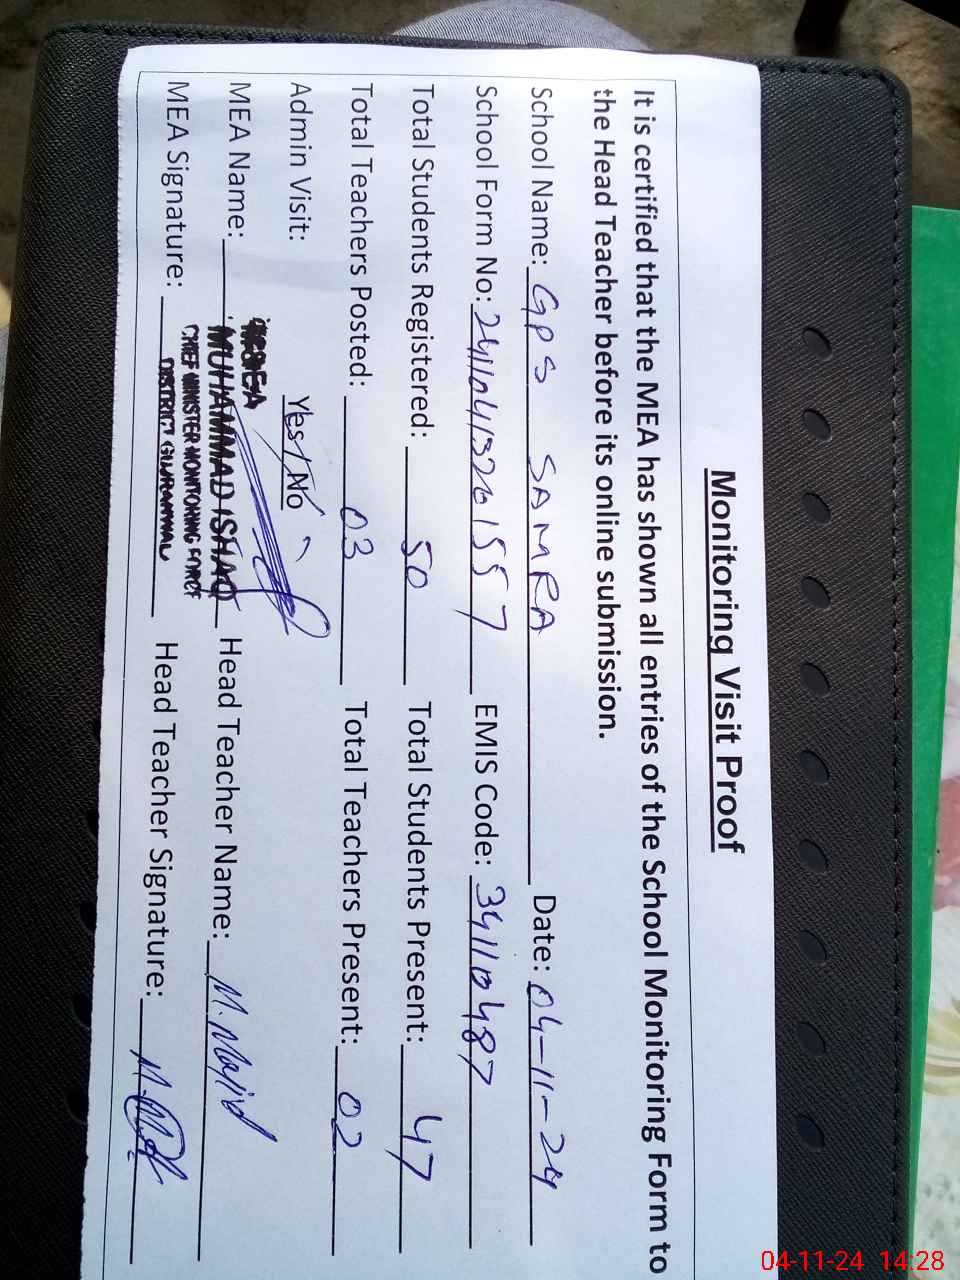 Monitoring Visit Proof
It is certified that the MEA has shown all entries of the School Monitoring Form to
the Head Teacher before its online submission.
School Name: GPS SAMRA Date: 04-11-24
School Form No: EMIS Code: 34110487
Total Students Registered: 50 Total Students Present: 47
Total Teachers Posted: 03 Total Teachers Present: 02
Admin Visit: Yes / No
MEA Name: MUHAMMAD ISHAQ Head Teacher Name: M. Majid
CHIEF MINISTER MONITORING FORCE
MEA Signature: DISTRICT Head Teacher Signature:
04-11-24 14:28